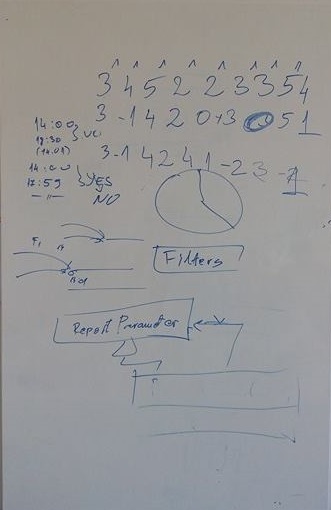 3 4 5 2 2 3 3 5 4
3 -1 4 2 0 +3 5 1
3 -1 4 2 4 1 -2 3 -1
14:00
18:30
(14.01)
14:00
17:59 YES
—"— NO
Filters
Report Parameter